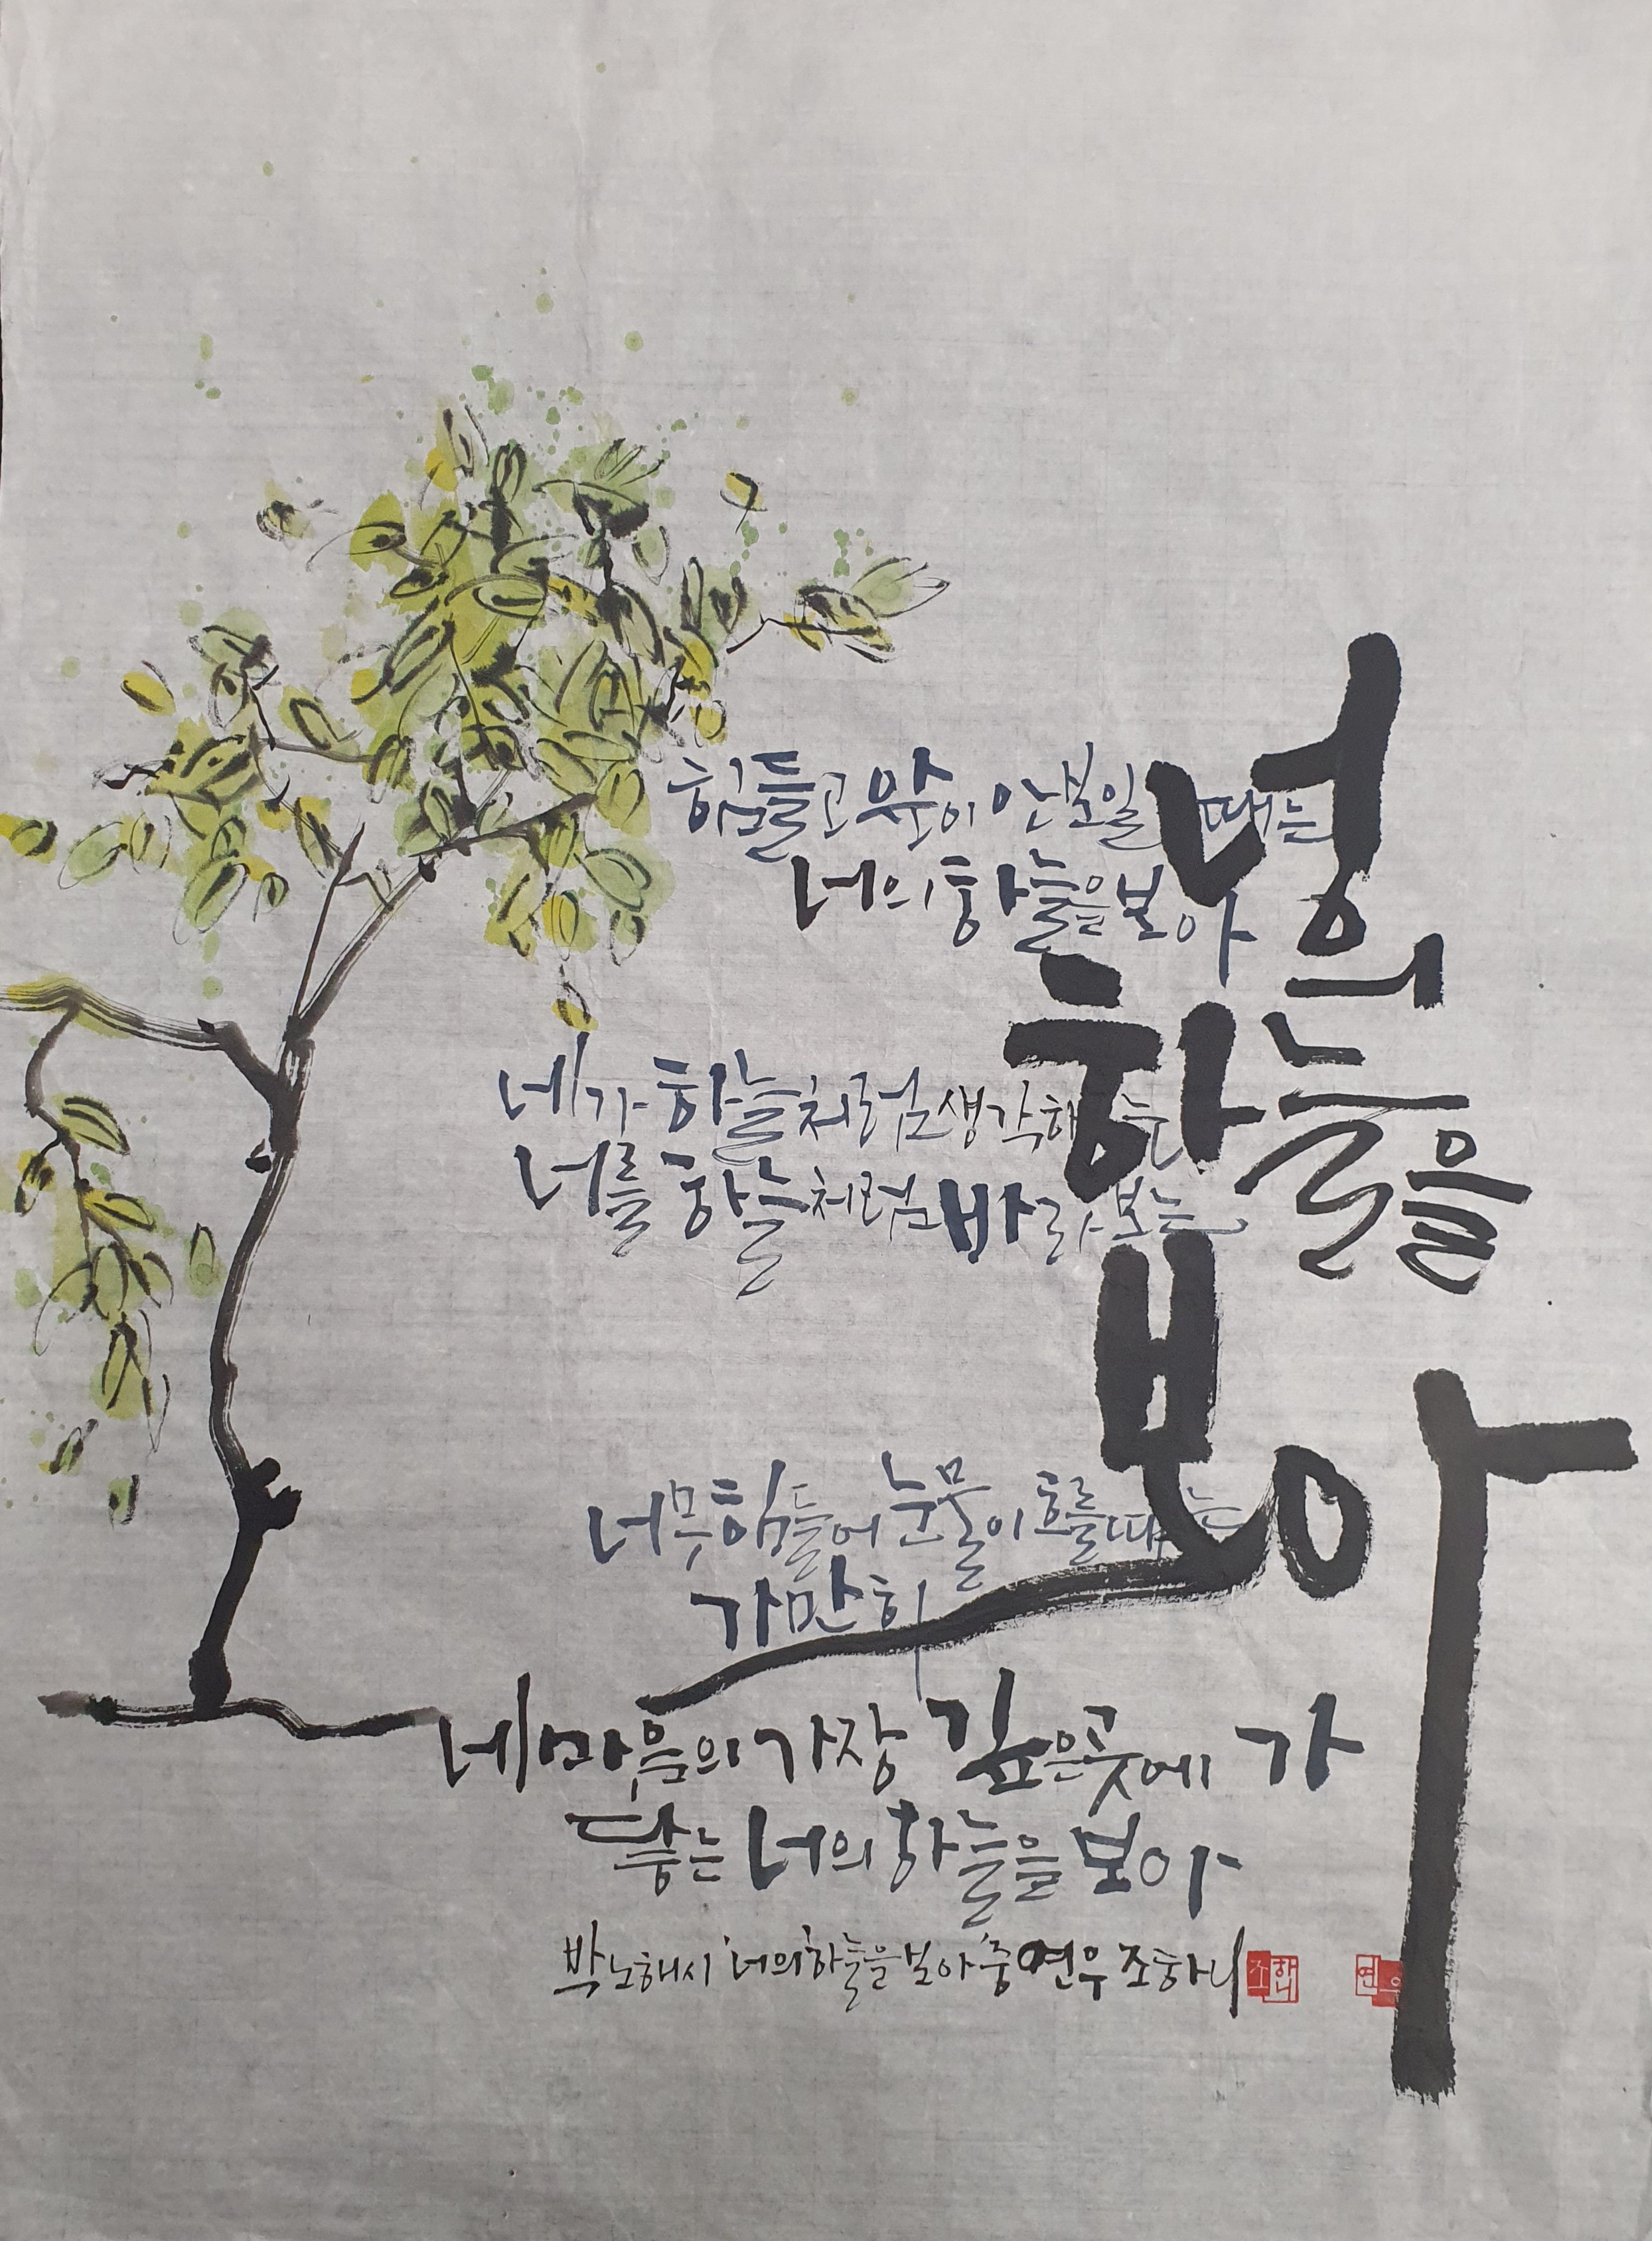 너의
하늘을
보아
힘들고 앞이 안보일 때는
너의 하늘을 보아
네가 하늘처럼 생각하는
너를 하늘처럼 바라보는
너무 힘들어 눈물이 흐를 때는
가만히
네 마음의 가장 깊은 곳에 가
닿는 너의 하늘을 보아
박노해 시 '너의 하늘을 보아' 중 연우 조하니
조하니
연우